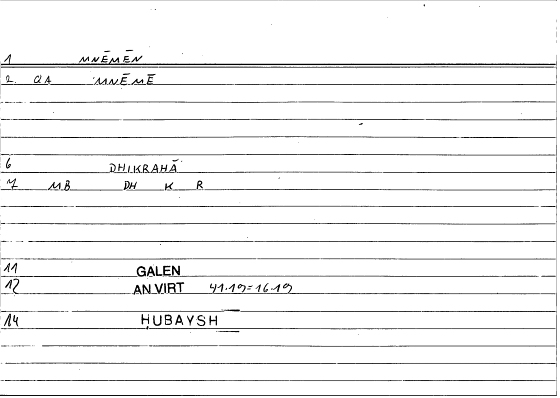 1 MNĒMĒN
2. QA MNĒMĒ
6 DHIKRAHĀ
7 MB DH K R
11 GALEN
12 AN VIRT 41.19=16.19
14 ḤUBAYSH